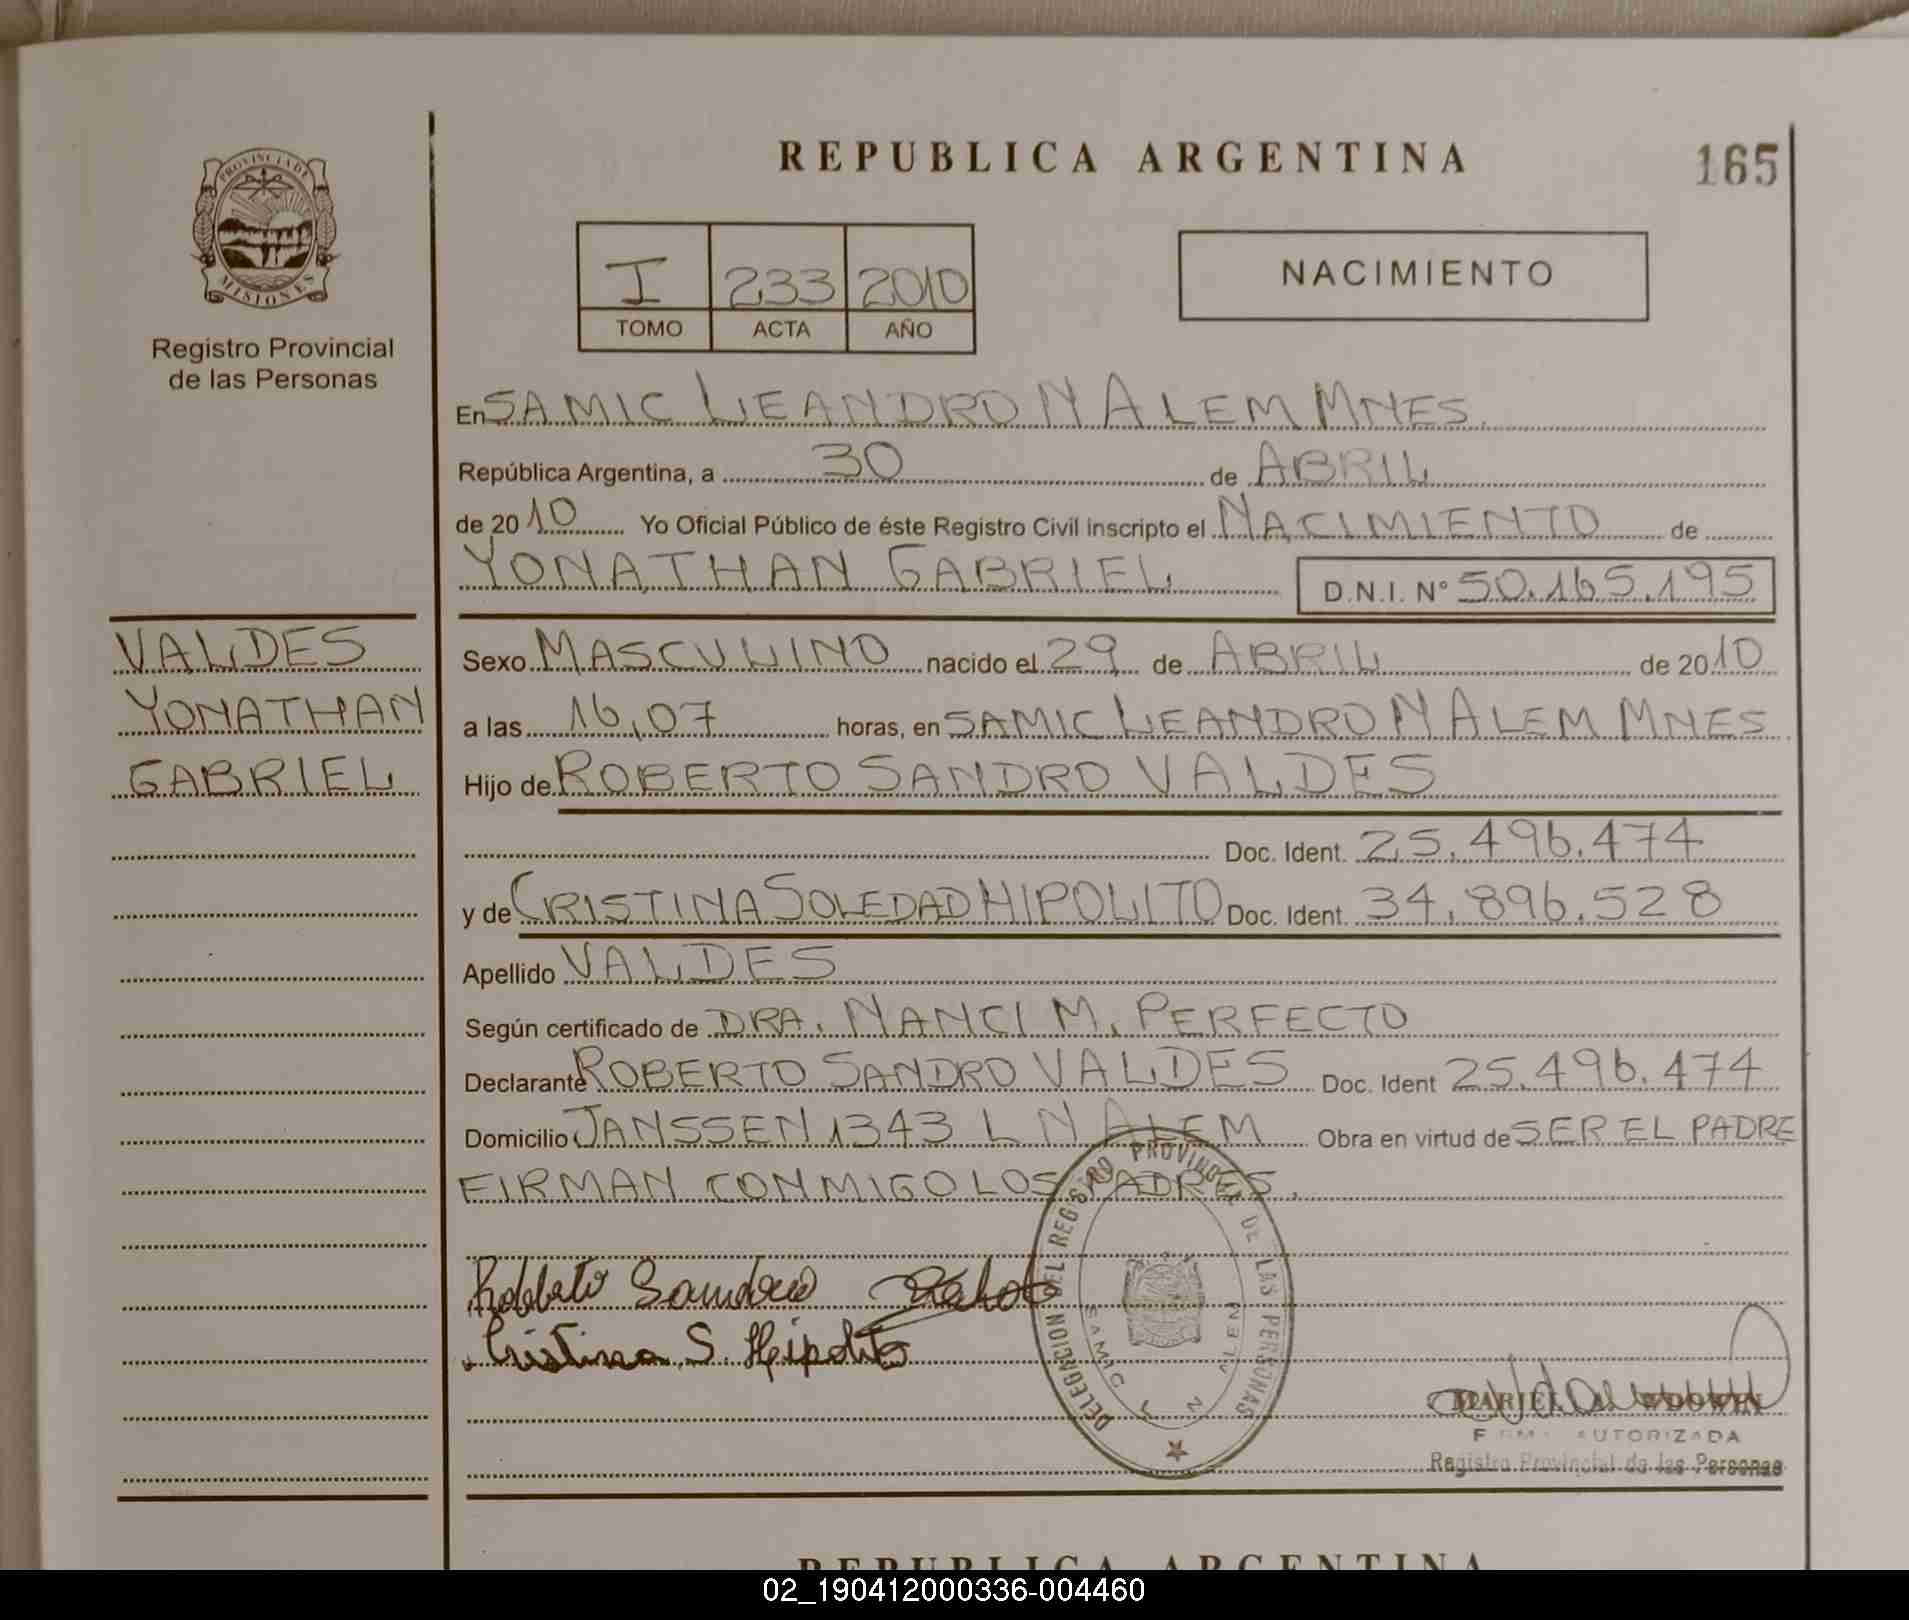 REPUBLICA ARGENTINA
165
PROVINCIA DE
MISIONES
Registro Provincial
de las Personas
I 233 2010
TOMO ACTA AÑO
NACIMIENTO
En SAMIC LEANDRO N ALEM MNES.
República Argentina, a 30 de ABRIL
de 2010 Yo Oficial Público de éste Registro Civil inscripto el NACIMIENTO de
YONATHAN GABRIEL D.N.I. Nº 50.165.195
VALDES
YONATHAN
GABRIEL
Sexo MASCULINO nacido el 29 de ABRIL de 2010
a las 16,07 horas, en SAMIC LEANDRO N ALEM MNES.
Hijo de ROBERTO SANDRO VALDES
Doc. Ident. 25.496.474
y de CRISTINA SOLEDAD HIPOLITO Doc. Ident. 34.896.528
Apellido VALDES
Según certificado de DRA. NANCI M. PERFECTO
Declarante ROBERTO SANDRO VALDES Doc. Ident 25.496.474
Domicilio JANSSEN 1343 L N ALEM Obra en virtud de SER EL PADRE
FIRMAN CONMIGO LOS PADRES.
DELEGACION DEL REGISTRO PROVINCIAL DE LAS PERSONAS
SAMIC L N ALEM
Roberto Sandro
Cristina S. Hipolito
FIRMA AUTORIZADA
Registro Provincial de las Personas
REPUBLICA ARGENTINA
02_190412000336-004460